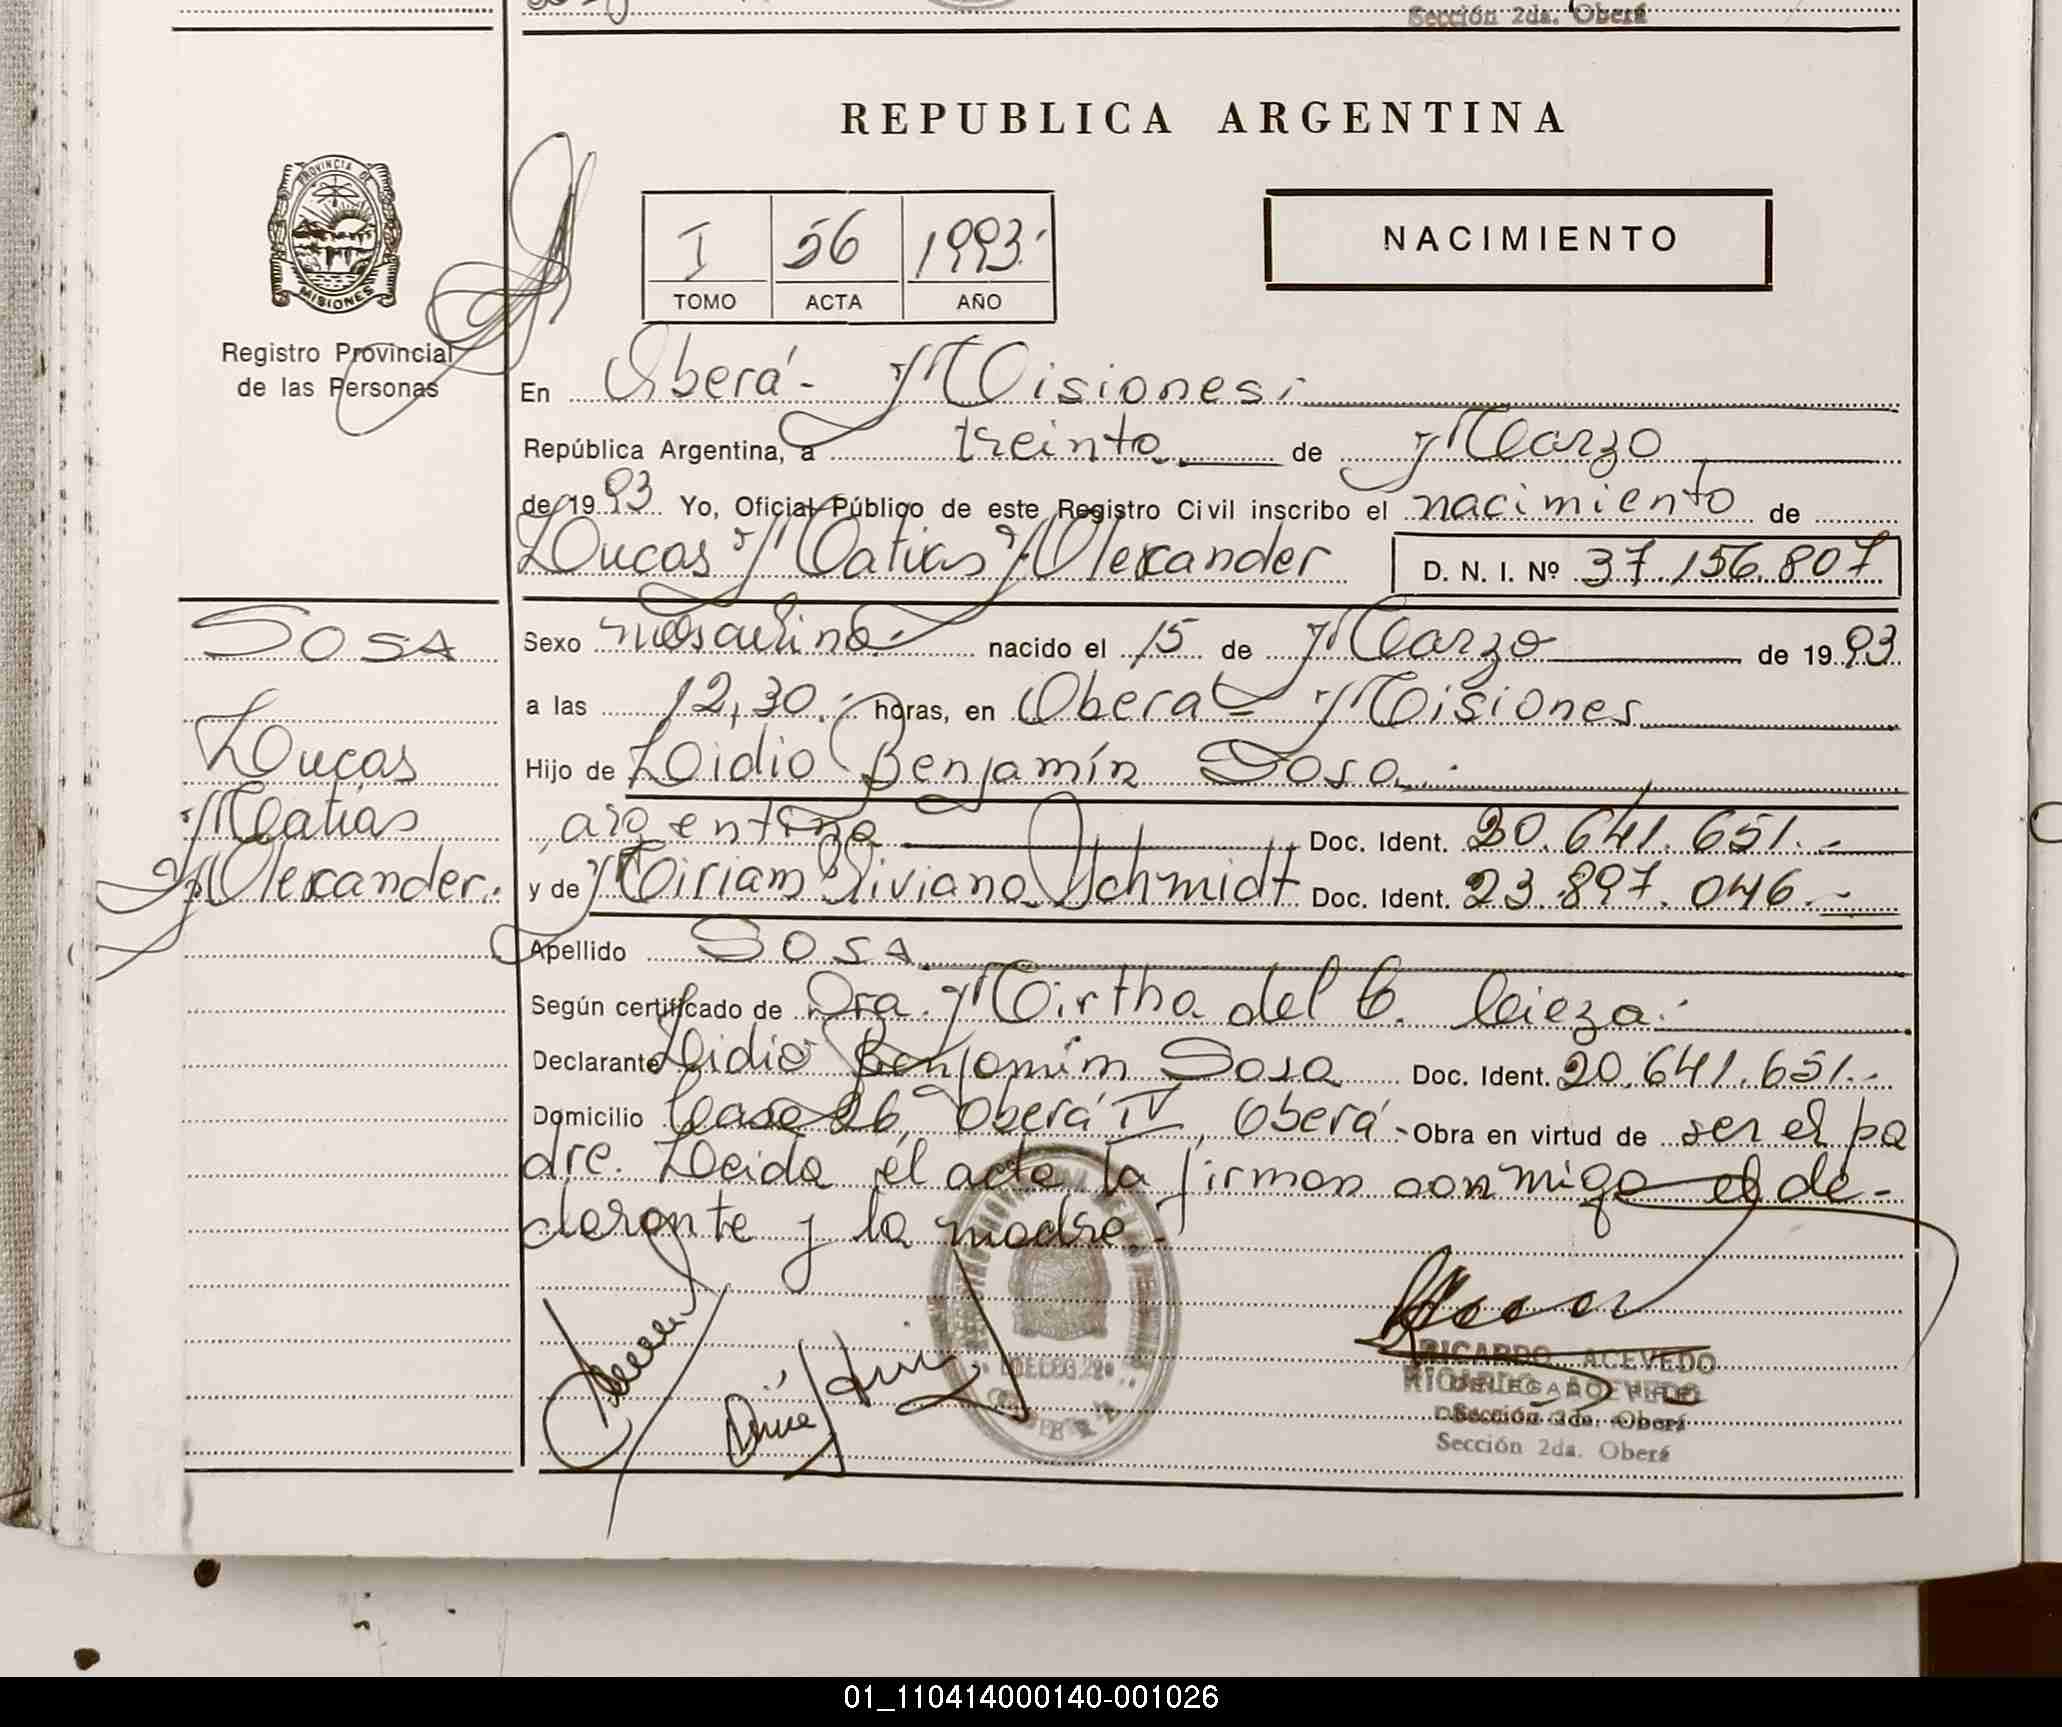 Sección 2da. Oberá
REPUBLICA ARGENTINA
PROVINCIA DE
MISIONES
Registro Provincial
de las Personas
I 56 1993.
TOMO ACTA AÑO
NACIMIENTO
En Oberá - Misiones.
República Argentina, a treinta de Marzo
de 1993 Yo, Oficial Público de este Registro Civil inscribo el nacimiento de
Lucas Matias Alexander D. N. I. Nº 37.156.807
SOSA
Lucas
Matias
Alexander.
Sexo masculino nacido el 15 de Marzo de 1993
a las 12,30. horas, en Oberá - Misiones
Hijo de Lidio Benjamín Sosa
argentino Doc. Ident. 20.641.651.-
y de Miriam Viviana Schmidt Doc. Ident. 23.897.046.-
Apellido SOSA
Según certificado de Dra. Mirtha del C. Cieza.
Declarante Lidio Benjamín Sosa Doc. Ident. 20.641.651.-
Domicilio Casa 26, Oberá IV, Oberá.- Obra en virtud de ser el pa
dre. Leida el acta la firman conmigo el de-
clarante y la madre.-
RICARDO ACEVEDO
Sección 2da. Oberá
01_110414000140-001026